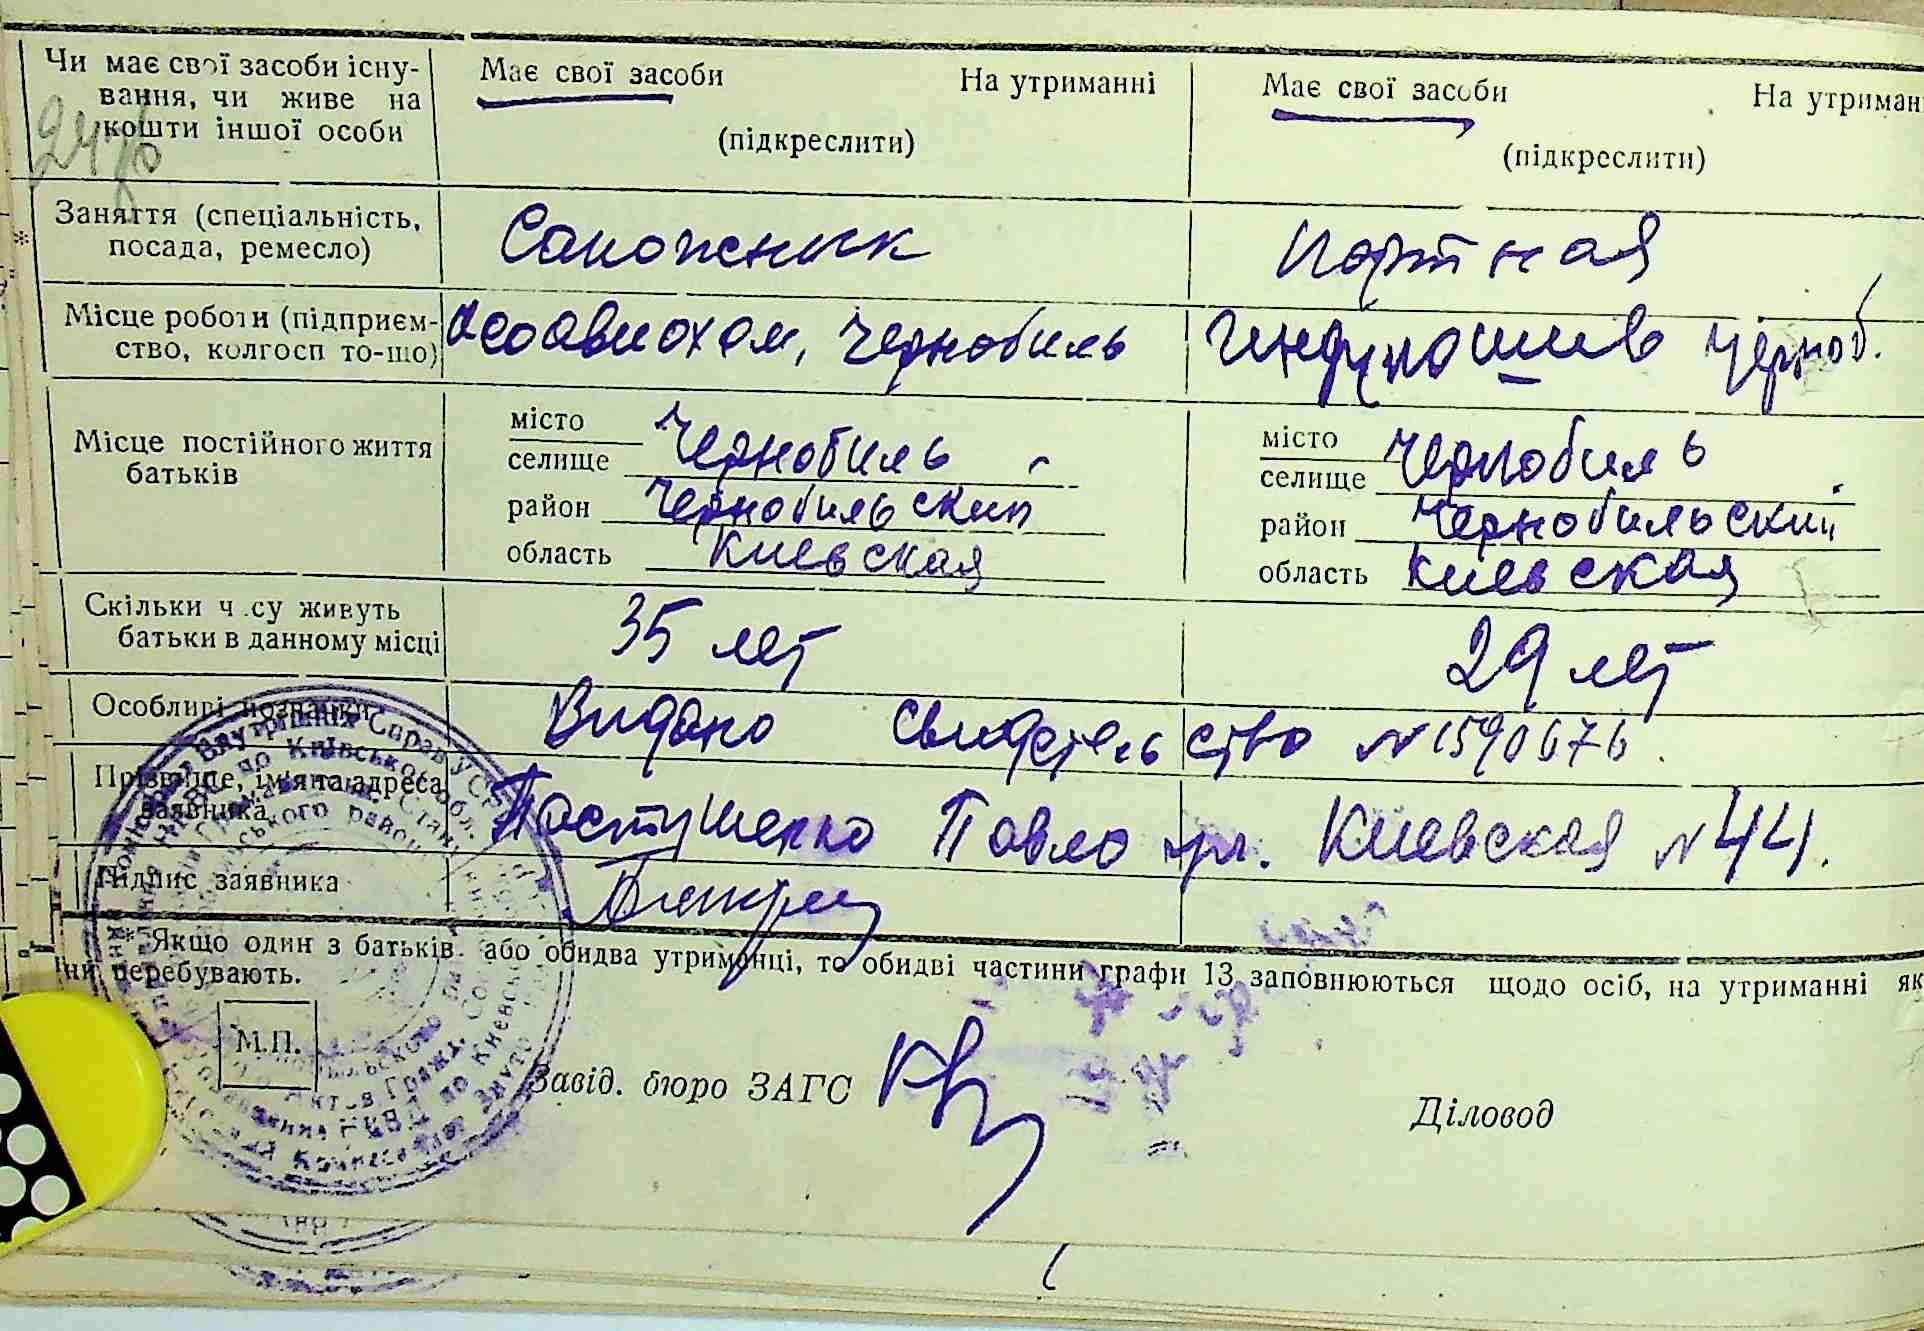 Чи має свої засоби існу-
вання, чи живе на
кошти іншої особи
Має свої засоби На утриманні
(підкреслити)
Має свої засоби На утриман
(підкреслити)
Заняття (спеціальність,
посада, ремесло)
Сапожник
Портная
Місце роботи (підприєм-
ство, колгосп то-що)
Асоавиохем, Чернобиль
Індпошив Черноб.
Місце постійного життя
батьків
місто
селище Чернобиль
район Чернобильский
область Киевская
місто
селище Чернобиль
район Чернобильский
область Киевская
Скільки ч су живуть
батьки в данному місці
35 лет
29 лет
Особливі познацки
Видано свидетельство N 1590676.
Прізвище, ім'я та адреса
заявника
Пастушенко Павло ул. Киевская N 44.
Підпис заявника
* Якщо один з батьків або обидва утриманці, то обидві частини графи 13 заповнюються щодо осіб, на утриманні як
перебувають.
М.П.
Завід. бюро ЗАГС
Діловод